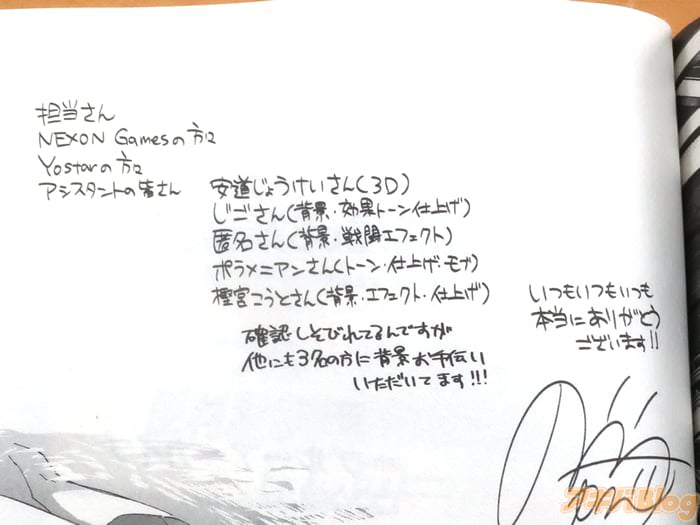 担当さん
NEXON Gamesの方々
Yostarの方々
アシスタントの皆さん
安道じょうけいさん(3D)
じごさん(背景・効果トーン仕上げ)
匿名さん(背景・戦闘エフェクト)
ポラメニアンさん(トーン・仕上げ・モブ)
樫宮こうとさん(背景・エフェクト・仕上げ)
確認しそびれてるんですが
他にも3名の方に背景お手伝い
いただいてます!!!
いつもいつもいつも
本当にありがとう
ございます!!
アキバBlog